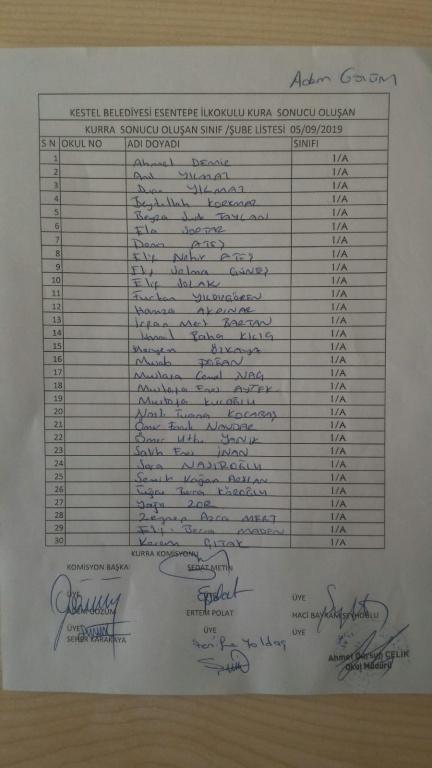 Adem GÖZÜM
KESTEL BELEDİYESİ ESENTEPE İLKOKULU KURA SONUCU OLUŞAN
KURRA SONUCU OLUŞAN SINIF /ŞUBE LİSTESİ 05/09/2019
S N OKUL NO ADI DOYADI SINIFI
1 Ahmet DEMİR 1/A
2 Anıl YILMAZ 1/A
3 YILMAZ 1/A
4 Beytullah KORKMAZ 1/A
5 Beyza TAYLAN 1/A
6 Ela 1/A
7 ATEŞ 1/A
8 Elif Nehir ATEŞ 1/A
9 Elif Selma GÜNEŞ 1/A
10 Elif SOLAK 1/A
11 Furkan 1/A
12 Hamza AKPINAR 1/A
13 İrfan Mert BARTAN 1/A
14 İsmail Taha KILIÇ 1/A
15 Meryem 1/A
16 Musab DOĞAN 1/A
17 Mustafa Cemal 1/A
18 Mustafa Enes AYTEK 1/A
19 Mustafa 1/A
20 Nazlı Tuana KOCABAŞ 1/A
21 Ömer Faruk 1/A
22 Ömer Utku YANIK 1/A
23 Salih Enes İNAN 1/A
24 1/A
25 Semih Kağan ASLAN 1/A
26 Tuğra KÖROĞLU 1/A
27 ZOR 1/A
28 Zeynep Azra MERT 1/A
29 MADEN 1/A
30 Kerem ÇITAK 1/A
KURRA KOMİSYONU
KOMİSYON BAŞKA SEDAT METİN
ÜYE ÜYE
ADEM GÖZÜM ERTEM POLAT HACİ BAYRAM ŞEYHOĞLU
ÜYE ÜYE ÜYE
SEHER KARAKAYA Şerife Yoldaş
Ahmet Dursun ÇELİK
Okul Müdürü